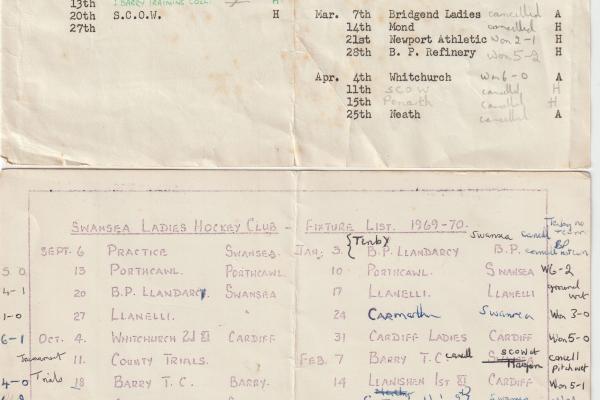 13th BARRY TRAINING COLL. H
20th S.C.O.W. H
27th
Mar. 7th Bridgend Ladies cancelled A
14th Mond cancelled H
21st Newport Athletic Won 2-1 H
28th B. P. Refinery Won 5-2 H
Apr. 4th Whitchurch Won 6-0 A
11th SCOW cancelled H
15th Penarth cancelled H
25th Neath cancelled A
SWANSEA LADIES HOCKEY CLUB - FIXTURE LIST. 1969-70.
SEPT. 6 PRACTICE SWANSEA.
5.0 13 PORTHCAWL. PORTHCAWL.
4-1 20 B.P. LLANDARCY SWANSEA
1-0 27 LLANELLI. "
6-1 OCT. 4. WHITCHURCH 2d XI CARDIFF
Tournament 11. COUNTY TRIALS.
4-0 Trials 18 BARRY T.C. BARRY.
Tenby Swansea cancell
JAN. 3. B.P. LLANDARCY B.P.
10 PORTHCAWL. SWANSEA W6-2
17 LLANELLI. LLANELLI ground unt
24 Carmarthen Swansea Won 3-0
31 CARDIFF LADIES CARDIFF Won 5-0
FEB. 7 BARRY T.C. cancell SCOW at cancell Pitch wet
14 LLANISHEN 1ST XI CARDIFF Won 5-1